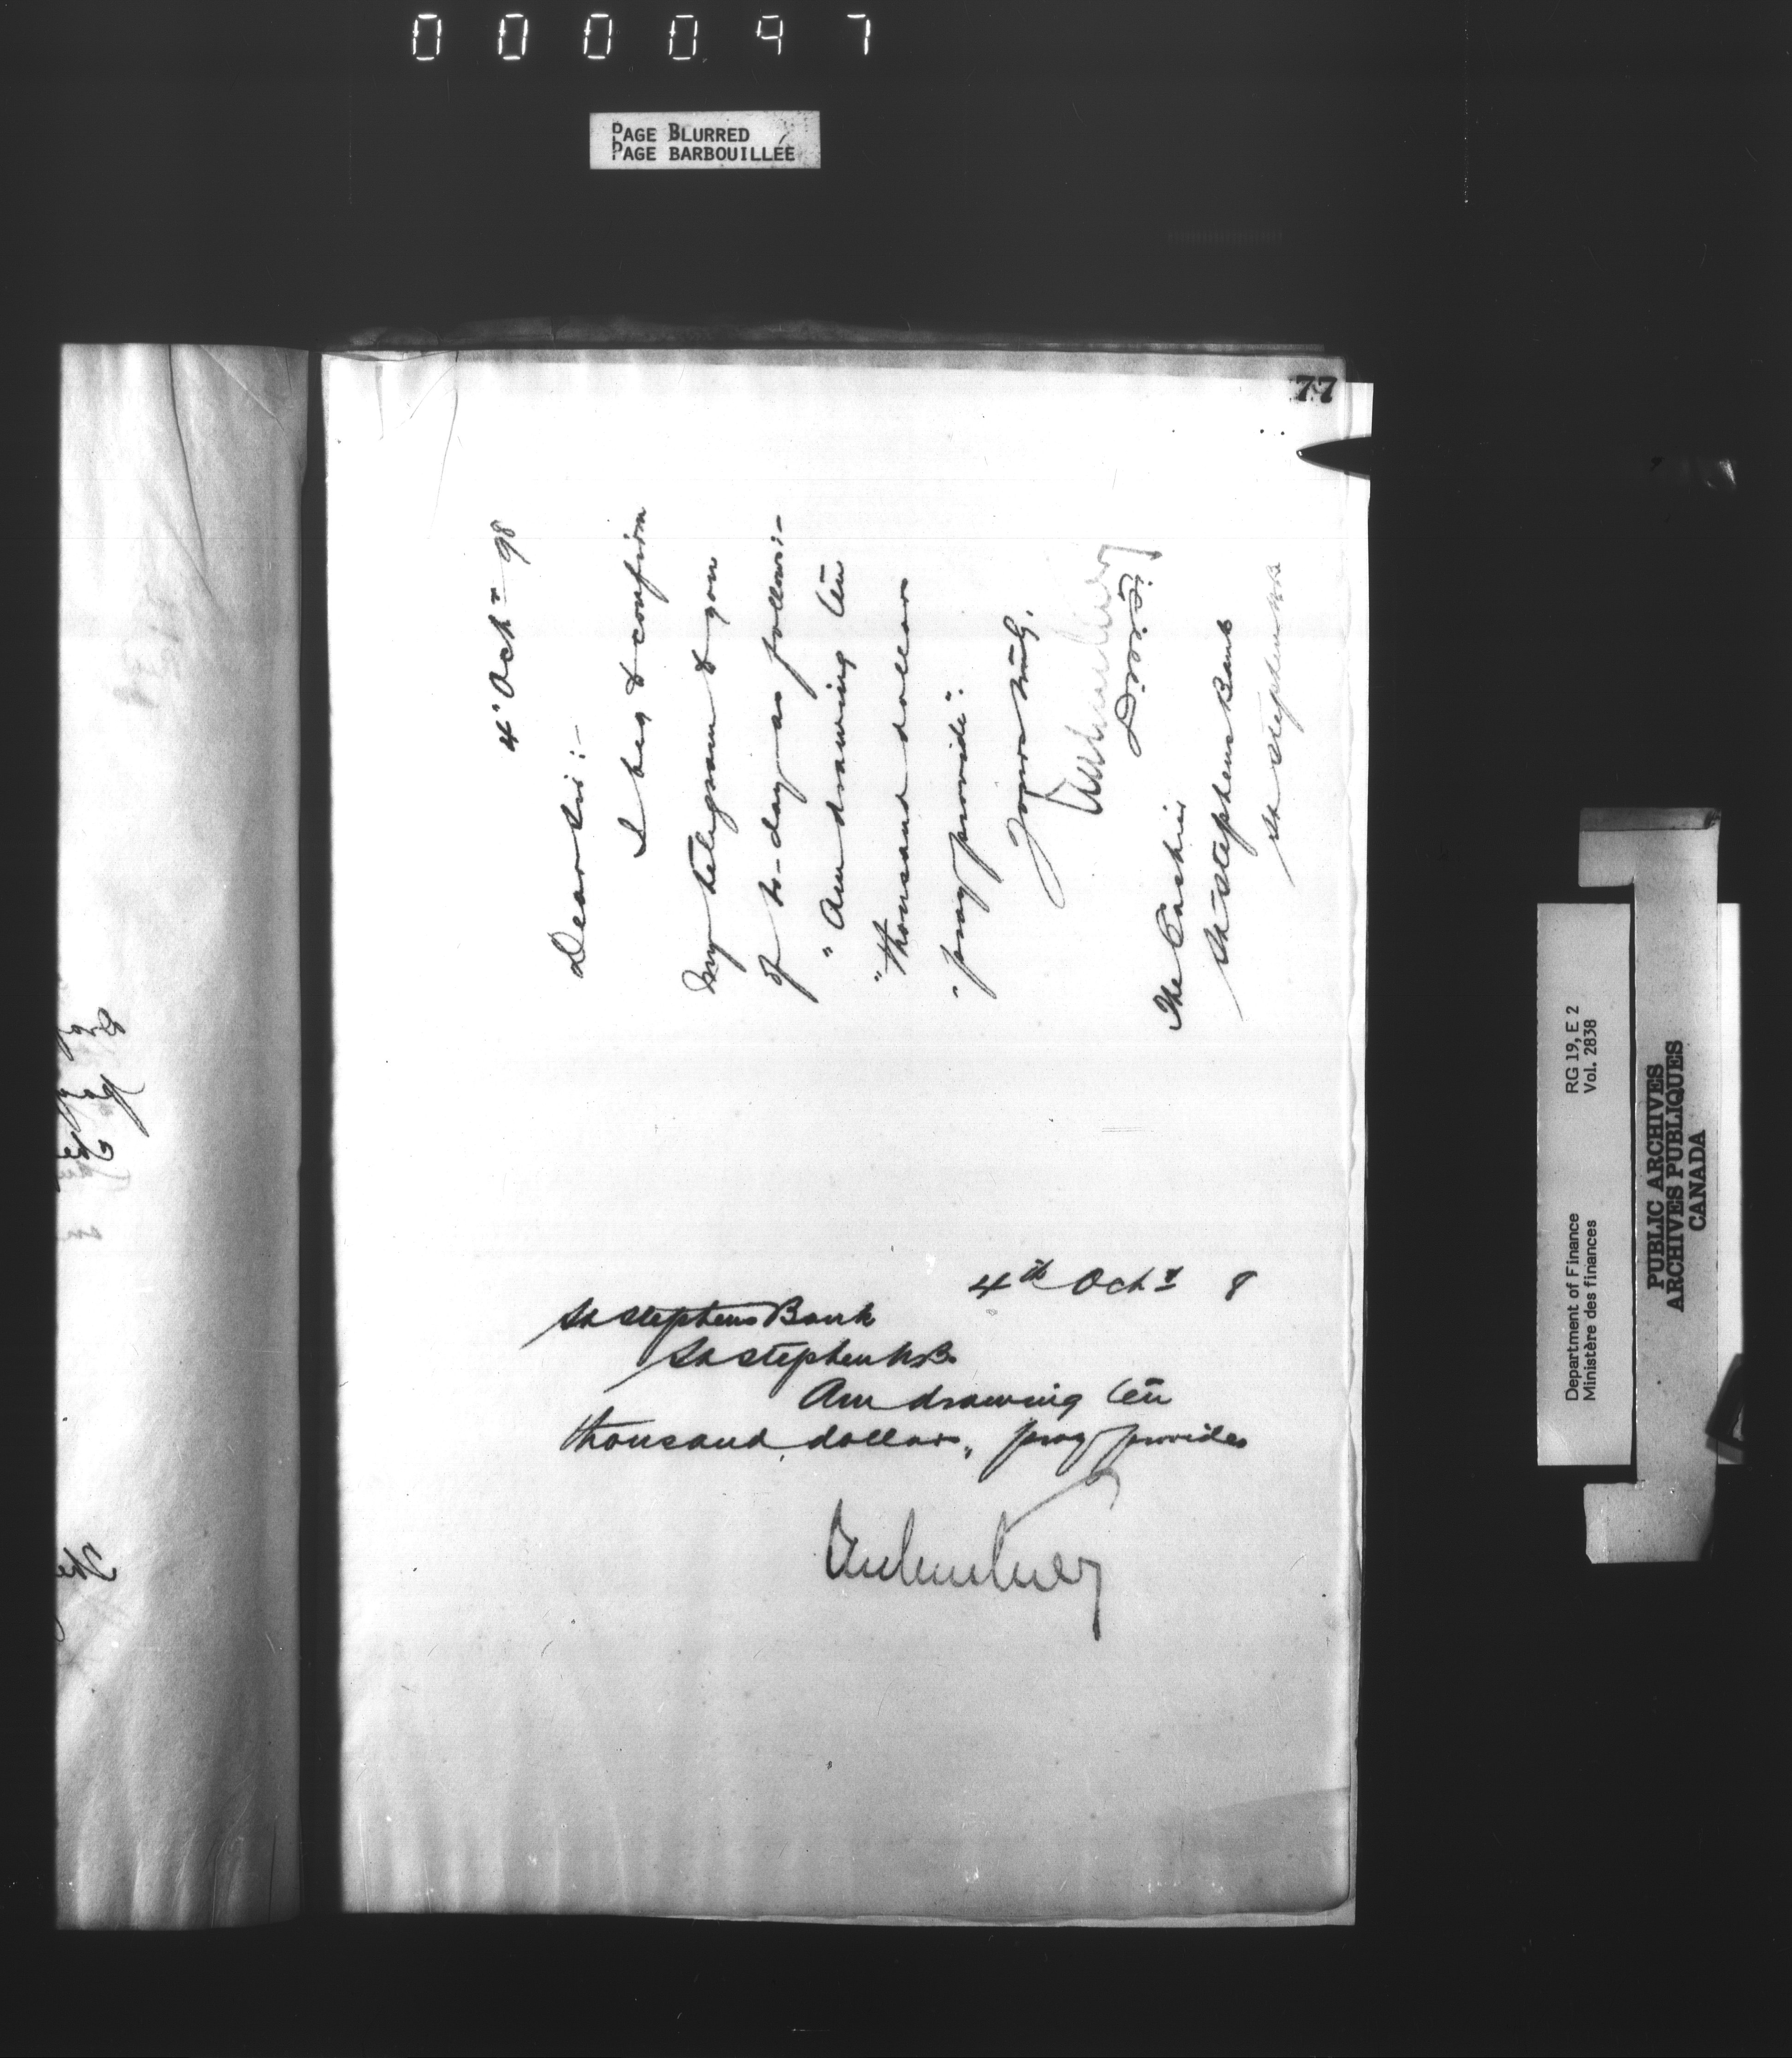 000097
PAGE BLURRED
PAGE BARBOUILLÉE
77
4" Octr 98
Dear Sir:-
I beg to confirm
my telegram to you
of to-day as follows:-
"Am drawing ten
"thousand dollars
"pray provide".
Yours truly,
The Cashier
St Stephens Bank
St Stephen N.B.
4th Octr 8
St Stephens Bank
St Stephen N.B.
Am drawing ten
thousand dollars, pray provide
Department of Finance RG 19, E 2
Ministère des finances Vol. 2838
PUBLIC ARCHIVES
ARCHIVES PUBLIQUES
CANADA